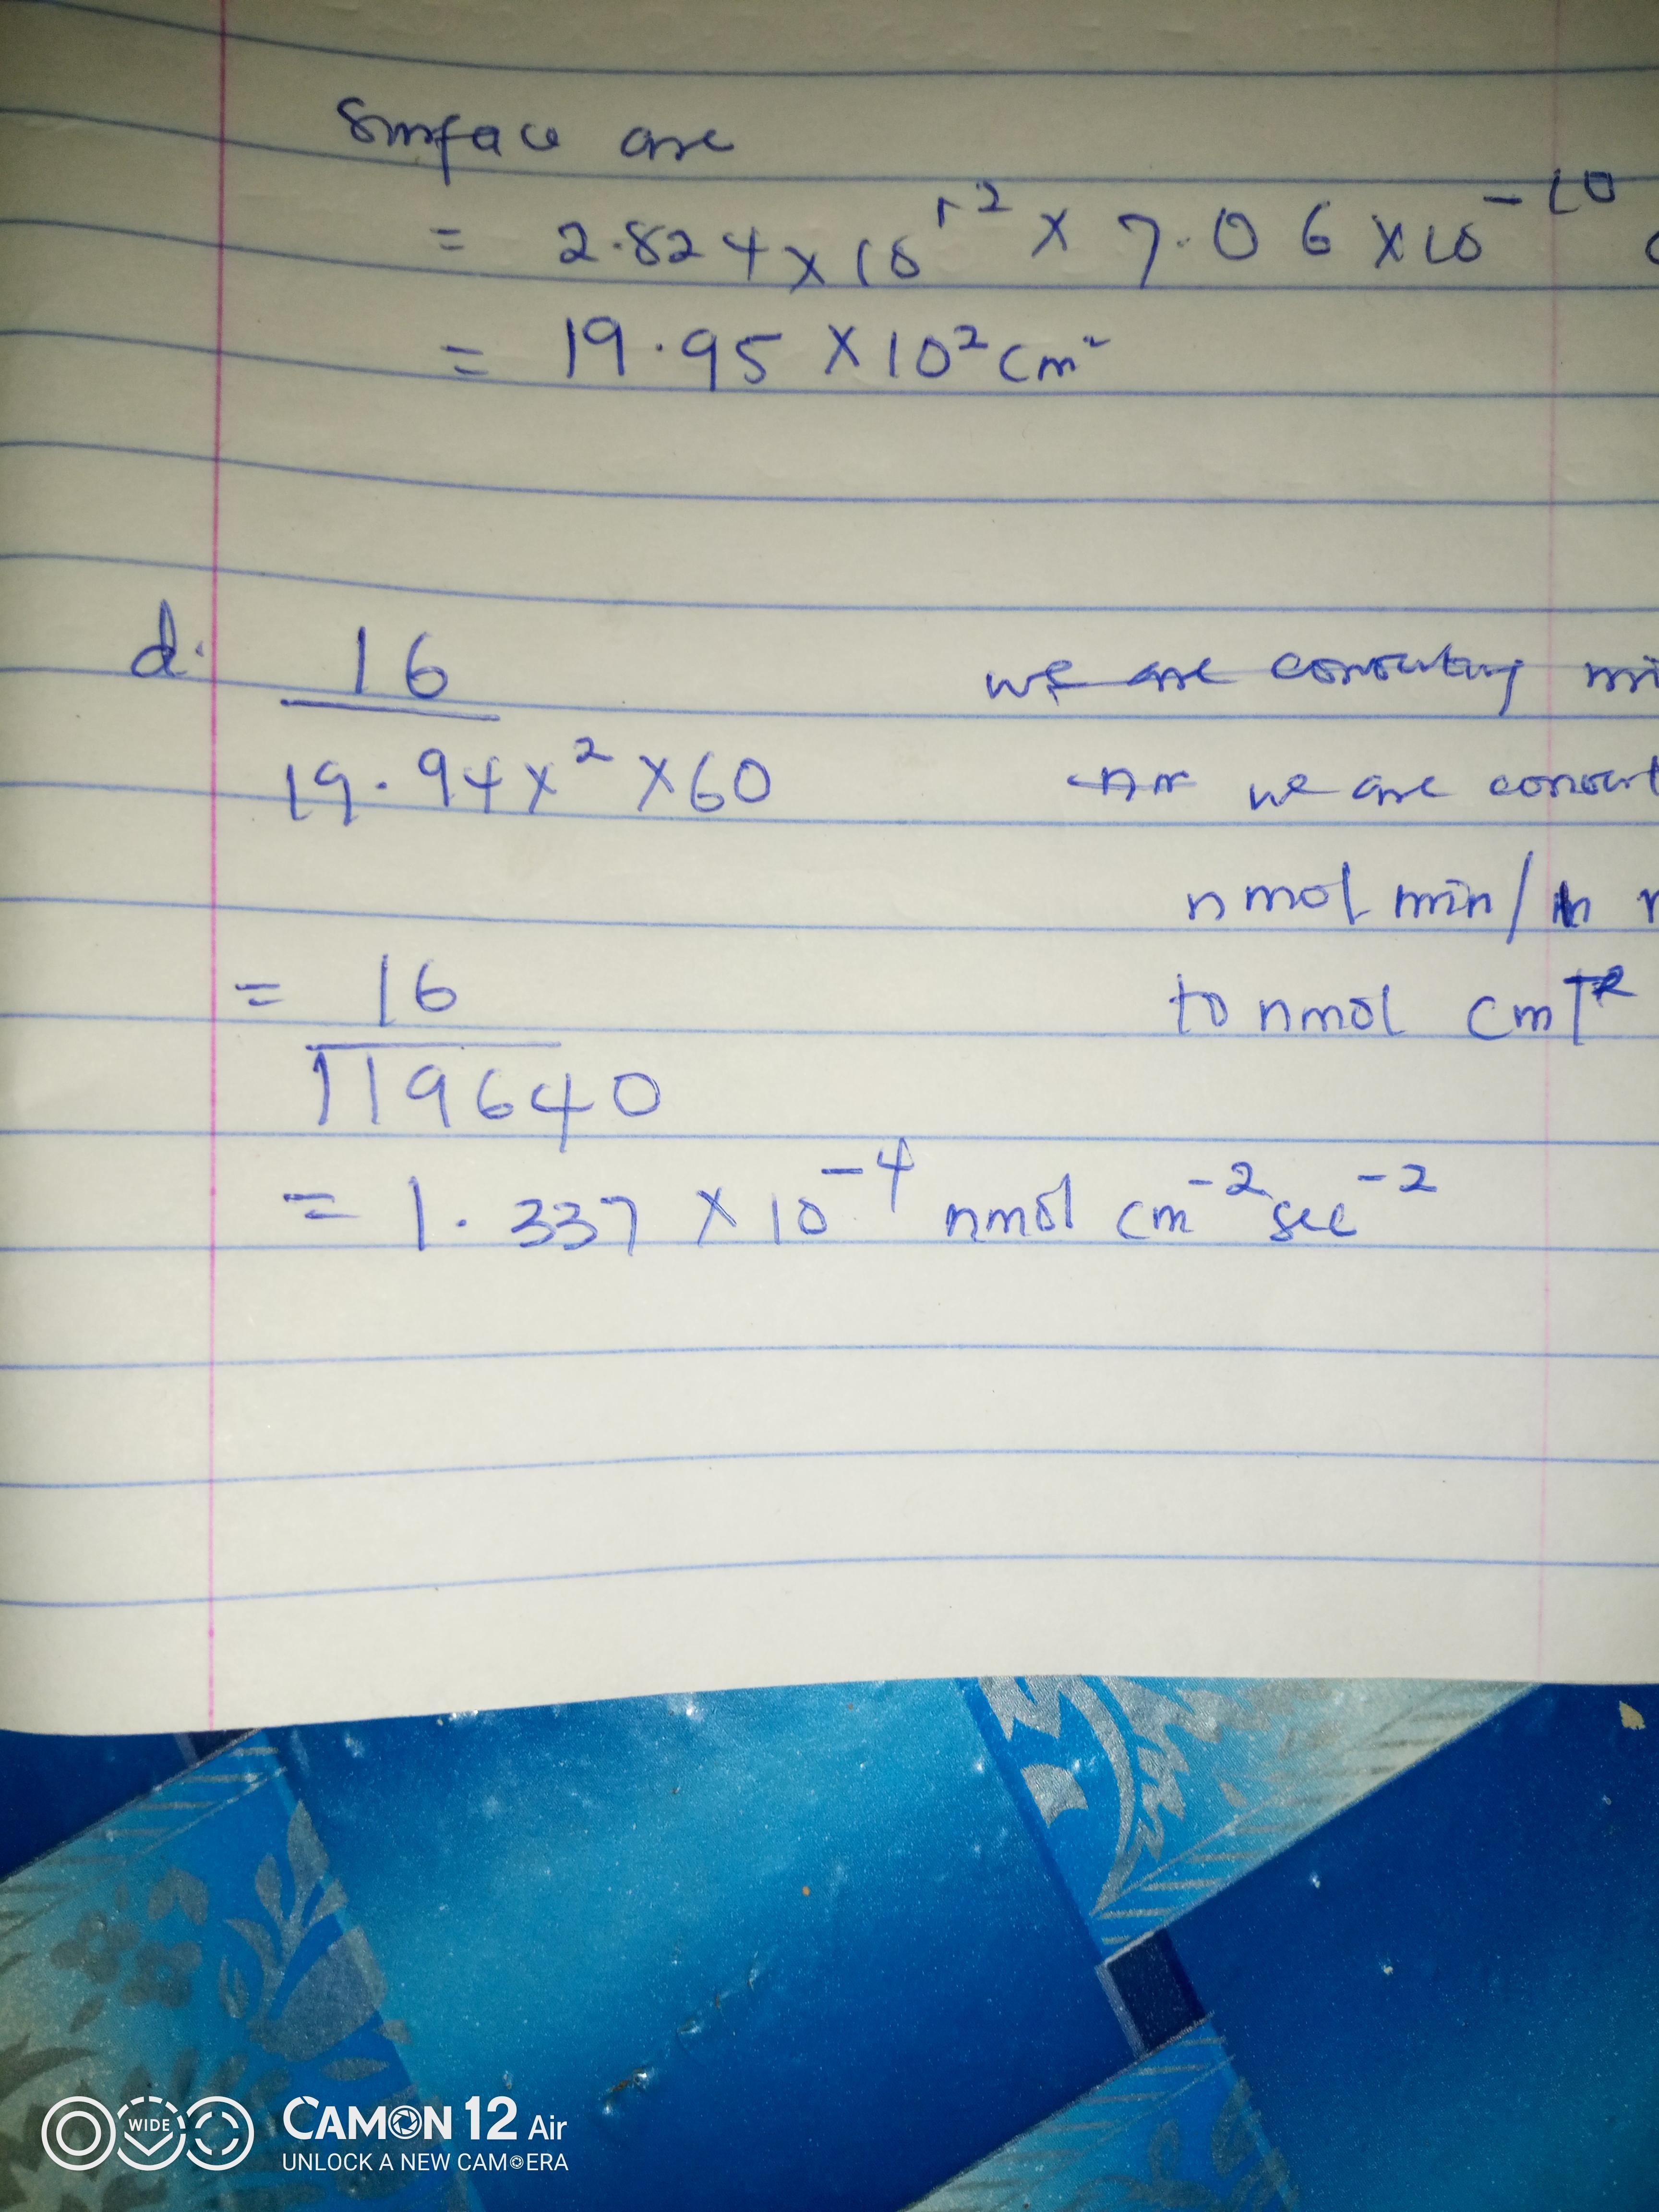 Surface are
= 2.824 x 10¹² x 7.06 x 10⁻¹⁰
= 19.95 x 10² cm²
d. 16
19.94x² x60
we are converting
we are convert
nmol min/
to nmol cm
= 16
119640
= 1.337 x 10⁻⁴ nmol cm⁻² sec⁻²
WIDE
CAMON 12 Air
UNLOCK A NEW CAMERA